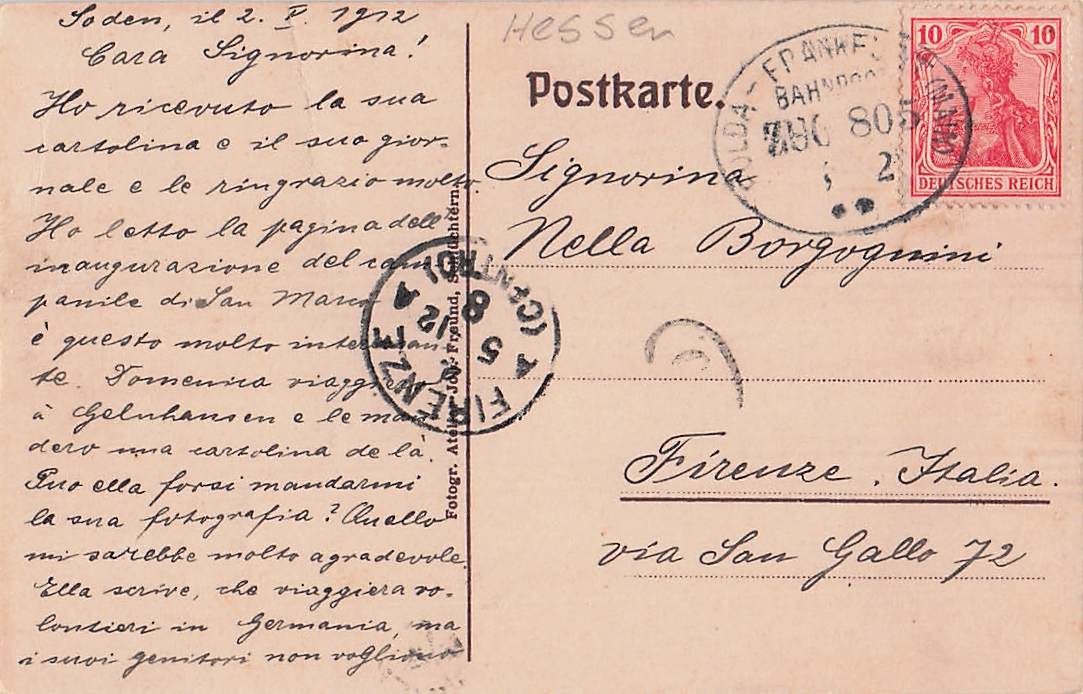 Soden, il 2. V. 1912
Cara Signorina!
Ho ricevuto la sua
cartolina e il suo gior-
nale e le ringrazio molto.
Ho letto la pagina dell'
inaugurazione del cam
panile di San Marco
è questo molto interessan-
te. Domenica viaggero
à Gelnhausen e le man
dero una cartolina de là.
Puo ella forsi mandarmi
la sua fotografia? Quello
mi sarebbe molto agradevole.
Ella scrive, che viaggiera vo-
lontieri in Germania, ma
i suoi genitori non vogliono
Hessen
Postkarte.
FRANKFURT (MAIN)
BAHNPOST
ZUG 805
2
10 10
DEUTSCHES REICH
Signorina
Nella Borgognini
Firenze. Italia.
via San Gallo 72
FIRENZE
(CENTRO)
A 5
12 A
8
Fotogr. Atelier Jos. Freund, Schlüchtern.